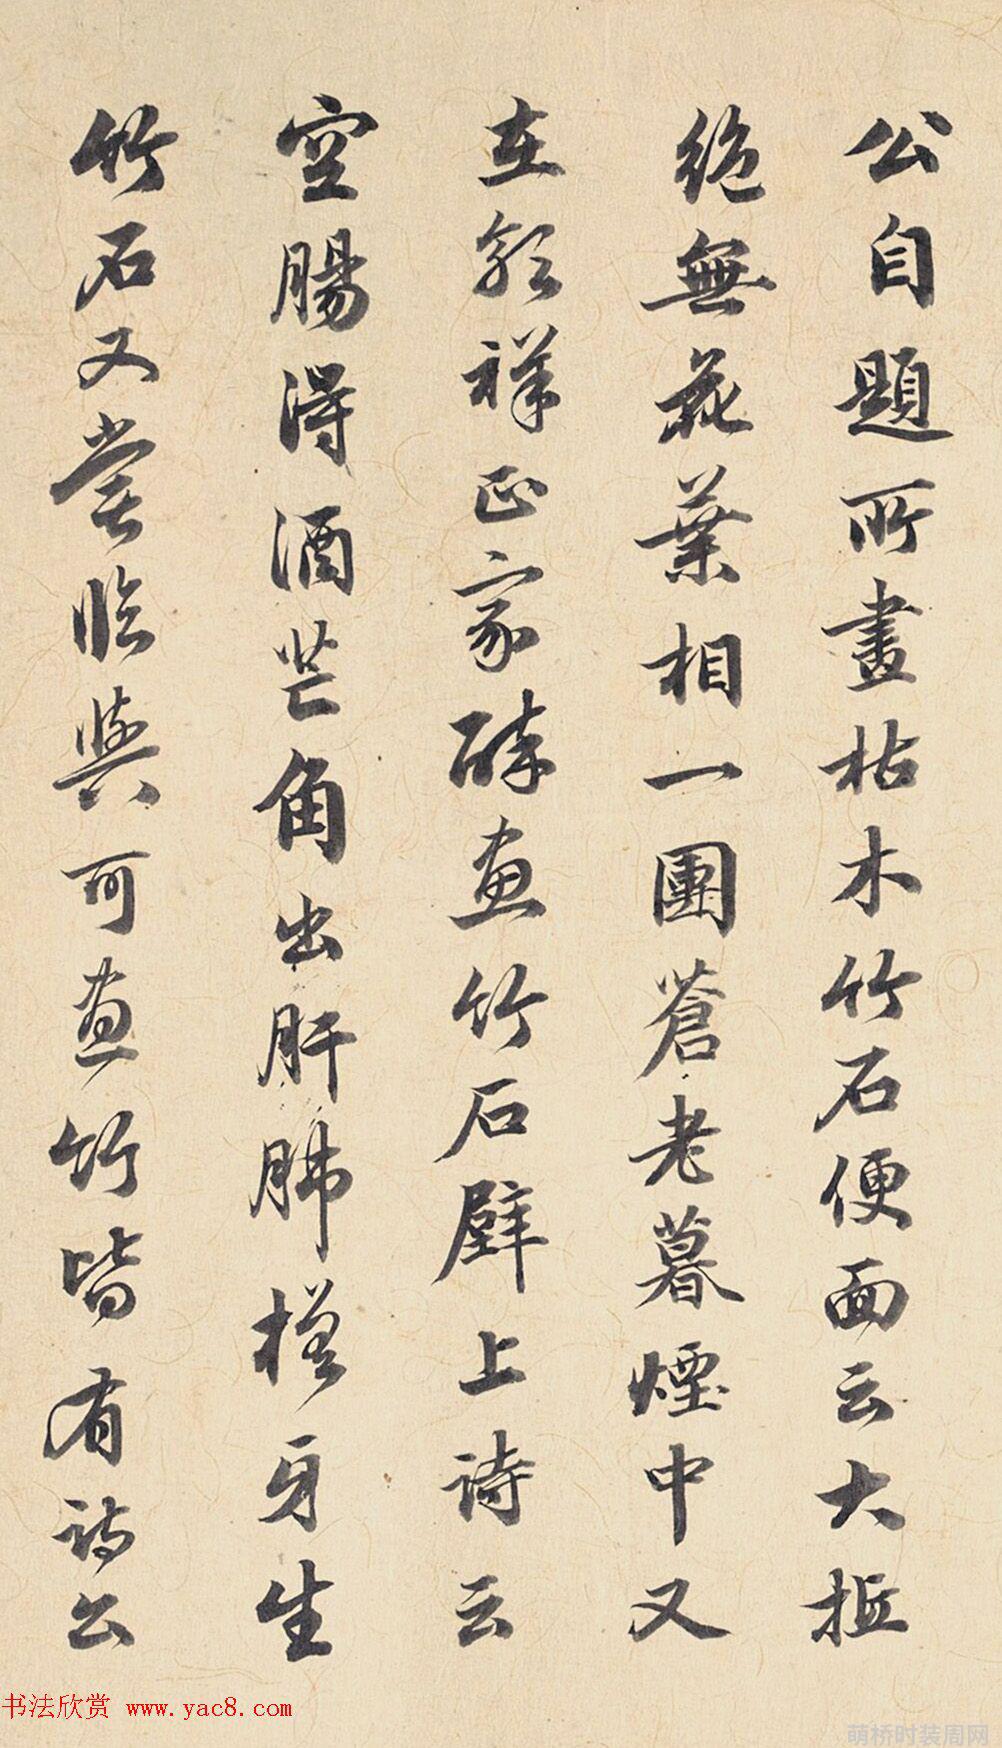 公自題所畫枯木竹石便面云大抵
絶無花葉相一團蒼老暮煙中又
在郭祥正家醉画竹石壁上詩云
空腸得酒芒角出肝肺槎牙生
竹石又嘗臨與可画竹皆有詩公
书法欣赏 www.yac8.com
萌桥时装周网